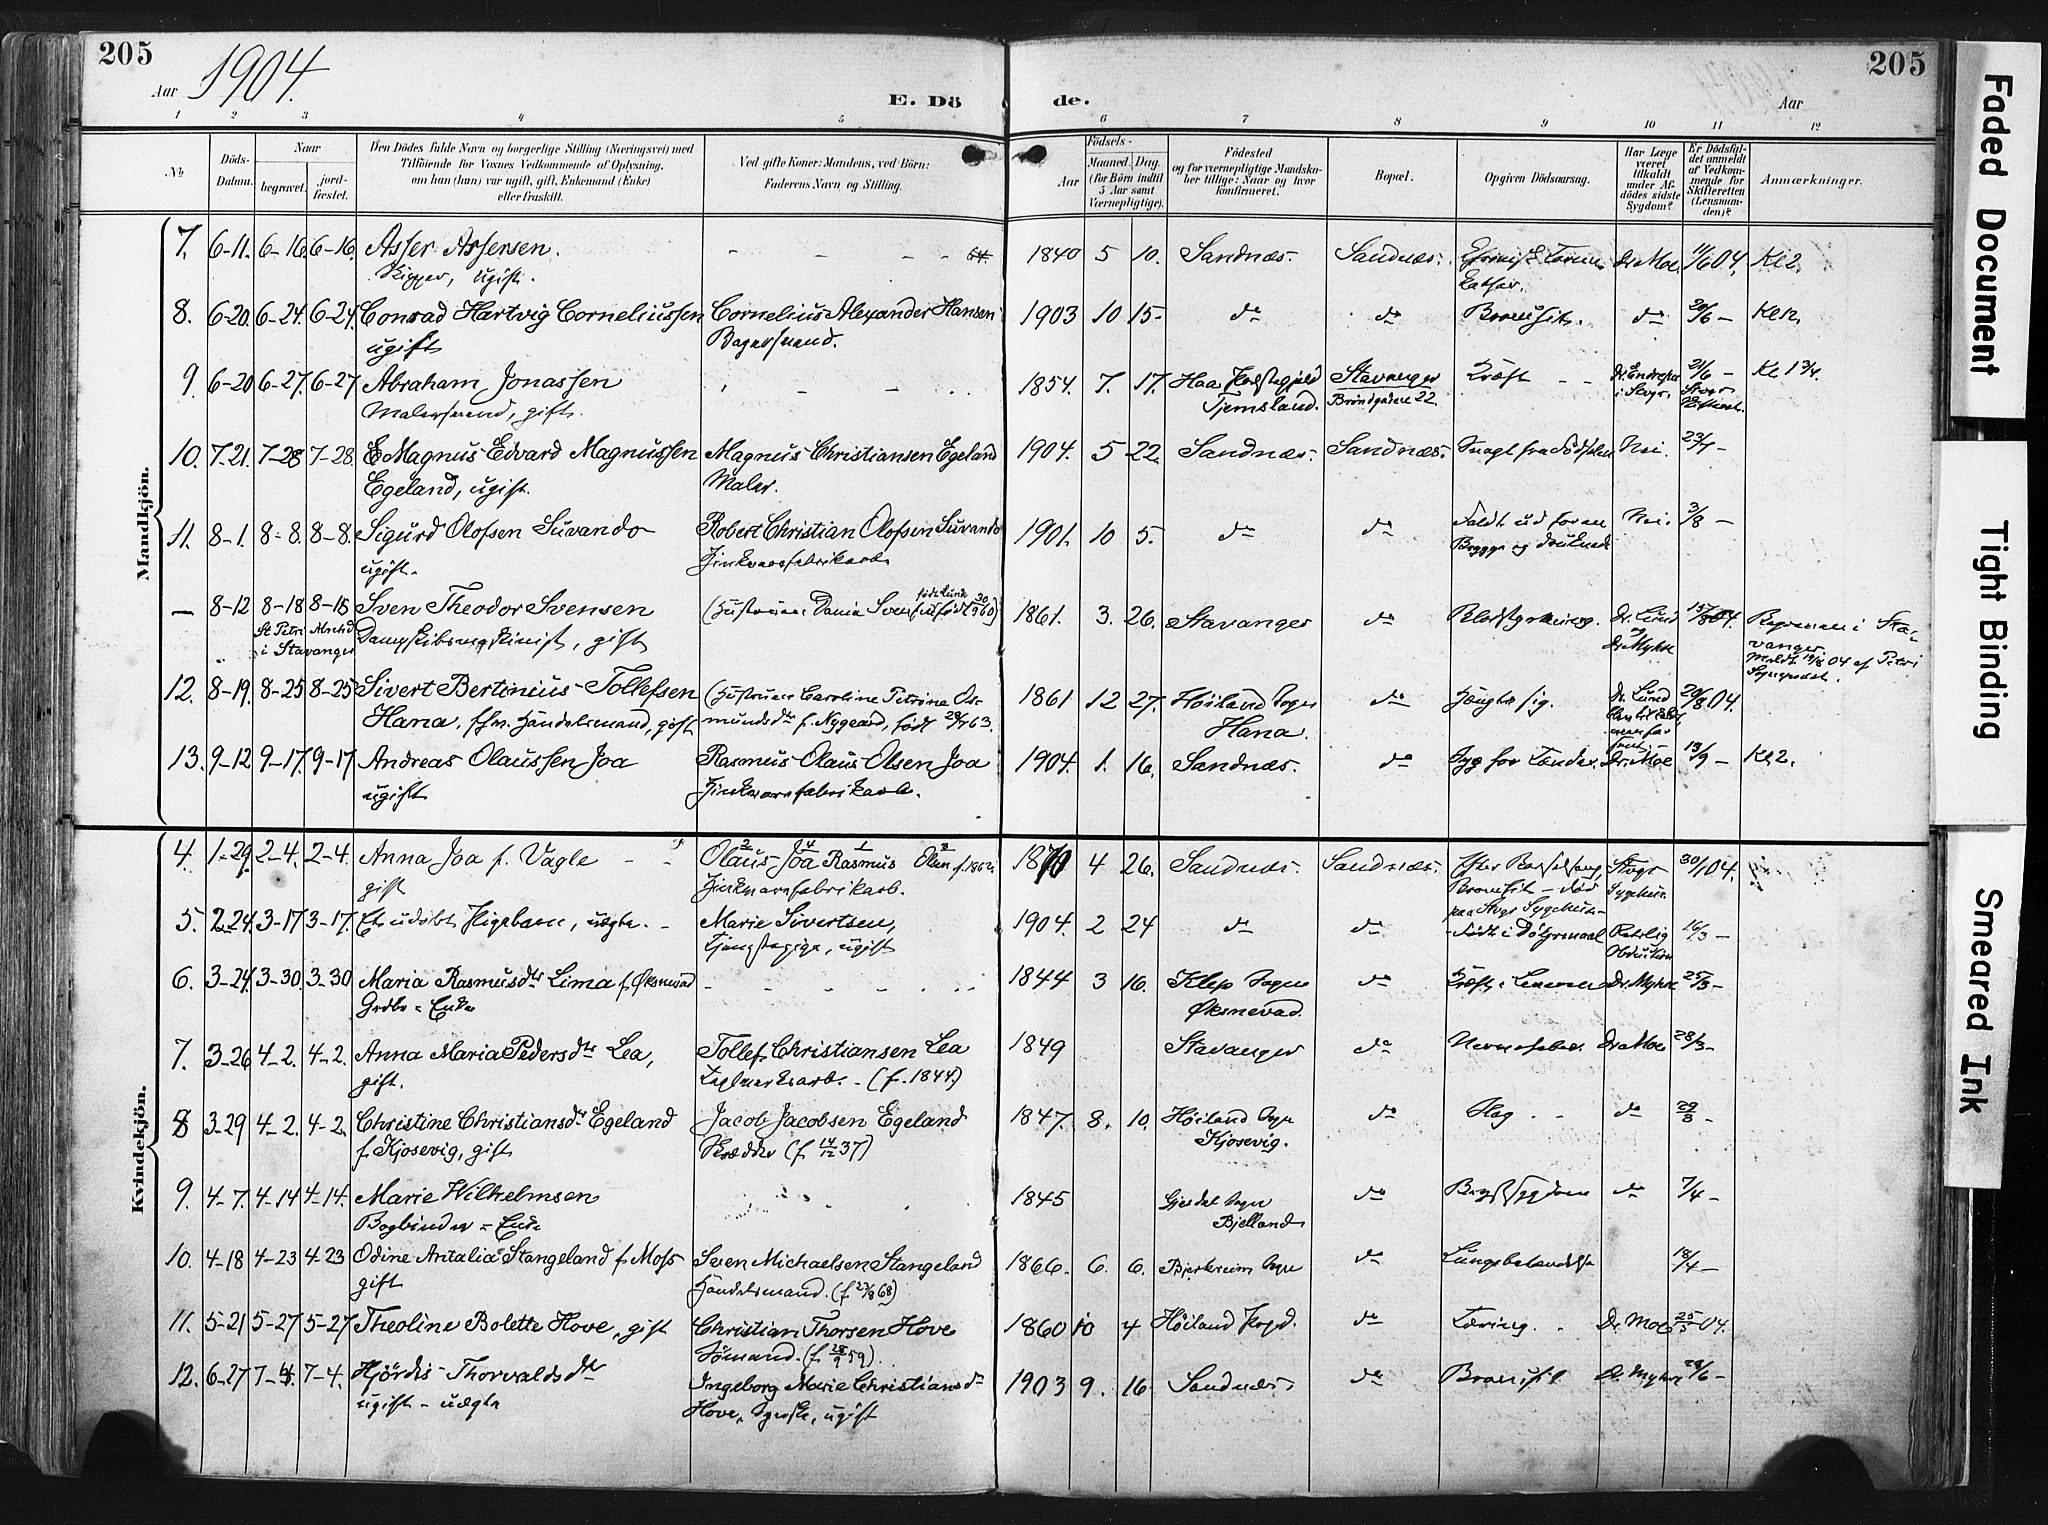 205
Aar 1904.
E. Dö
de.
Aar
205
1 2 3 4 5 6 7 8 9 10 11 12
No
Döds-Datum.
Naar
begravet.
jord-fæstet.
Den Dödes fulde Navn og borgerlige Stilling (Næringsvei) med
Tilföiende for Voxnes Vedkommende af Oplysning,
om han (hun) var ugift, gift, Enkemand (Enke)
eller fraskilt.
Ved gifte Koner: Mandens, ved Börn:
Faderens Navn og Stilling.
Födsels-
Aar
Maaned. Dag.
(for Börn indtil
5 Aar samt
Værnepligtige).
Födested
og for værnepligtige Mandska-
ber tillige: Naar og hvor
konfirmeret.
Bopæl.
Opgiven Dödsaarsag.
Har Læge
været
tilkaldt
under Af-
dödes sidste
Sygdom?
Er Dödsfal-
det anmeldt
af Vedkom-
mende for
Skifteretten
(Lensman-
den)?
Anmærkninger.
Mandkjön.
7. 6-11. 6-16. 6-16. Asser Assersen. 1840 5 10. Sandnæs. Sandnæs. Dr. Moe. 11/6 04. Kl 2.
Skipper, ugift.
8. 6-20. 6-24. 6-24. Conrad Hartvig Corneliussen Cornelius Alexander Hansen 1903 10 15. do do Bronchit. do 20/6 – Kl 12.
ugift Bagersvend.
9. 6-20 6-27. 6-27 Abraham Jonassen 1854. 7. 17. Haa Stavanger Kræft 21/6 – Kl 1 3/4.
Malersvend, gift. Tjemsland. Brøndgaden 22. i Stvgr.
10. 7-21. 7-28 7-28. Magnus Edvard Magnussen Magnus Christiansen Egeland 1904. 5 22. Sandnæs. Sandnæs. Svagt fra Fødselen Nei. 23/7 –
Egeland, ugift. Maler.
11. 8-1. 8-8. 8-8. Sigurd Olofsen Suvando Robert Christian Olofsen Suvando 1901. 10 5. do do Faldt ud for en Nei. 3/8 –
ugift. Brygge og druknede
— 8-12 8-18 8-18 Sven Theodor Svensen (Hustruen: Dania Svensen født Lunde 1861. 3. 26. Stavanger do Dr. Lund 15/8 04.
St Petri i Stavanger Dampskibsmaskinist, gift og Dr. Myhre
12. 8-19. 8-25 8-25 Sivert Bertinius Tollefsen (Hustruen Caroline Petrine Os- 1861 12 27. Høiland Sogn do Hængte sig. Dr. Lund 20/8 04.
Hana, fhv. Handelsmand, gift mundsdtr f. Nygaard, født Hana.
13. 9-12 9-17. 9-17 Andreas Olaussen Joa Rasmus Olaus Olsen Joa 1904. 1. 16. Sandnæs. do Syg for Tænder. Dr. Moe 13/9 – Kl 2.
ugift Zinkvarefabrikarb.
Kvindekjön.
4. 1-29. 2-4. 2-4. Anna Joa f. Vagle Olaus Joa Rasmus Olsen f. 1862 1870 4 26. Sandnæs. Sandnæs. Efter Barselseng, Stvgr 30/1 04.
gift Zinkvarefabrikarb. Bronchit – død Sygehus.
paa Stvgr Sygehus
5. 2-24. 3-17 3-17. Et udøbt Pigebarn, uægte. Marie Sivertsen, 1904. 2 24 do do Født i Dølgsmaal Retslig 16/3 –
Tjenestepige, ugift Obduktion
6. 3-24. 3-30. 3-30 Maria Rasmusdtr Lima f. Øksnevad 1844 3 16. Klep Sogn do Kræft i Leveren Dr. Myhre 25/3 –
Enke Øksnevad.
7. 3-26 4-2. 4-2. Anna Maria Pedersdtr Lea, Tollef Christiansen Lea 1849 Stavanger do Dr. Moe 28/3 –
gift. Teglverksarb. – (f. 1844.)
8 3-29 4-2. 4-2. Christine Christiansdr Egeland Jacob Jacobsen Egeland 1847. 8. 10. Høiland Sogn do Slag. do 29/3 –
f. Kjosevig, gift Skrædder (f. 14/12 37) Kjosevig.
9. 4-7. 4-14 4-14. Marie Wilhelmsen 1845 Gjesdal Sogn do Brystsygdom do 7/4 –
Bogbinder = Enke Bjelland
10. 4-18 4-23 4-23 Odine Antalia Stangeland f. Moss Sven Michaelsen Stangeland 1866. 6. 6. Bjerkreim Sogn do Lungebetændelse 18/4 –
gift Handelsmand. (f. 23/8 68)
11. 5-21 5-27 5-27 Theoline Bolette Hove, gift Christian Thorsen Hove 1860 10 4 Høiland Prgd. do Tæring. Dr. Moe 25/5 04.
Sømand. (f. 28/9 59).
12. 6-27 7-4. 7-4. Hjördis Thorvaldsdtr Ingeborg Marie Christiansdr 1903 9. 16 Sandnæs do Bronchit Dr. Myhre 28/6 –
ugift – uægte Hove, Syerske, ugift
Faded Document
Tight Binding
Smeared Ink